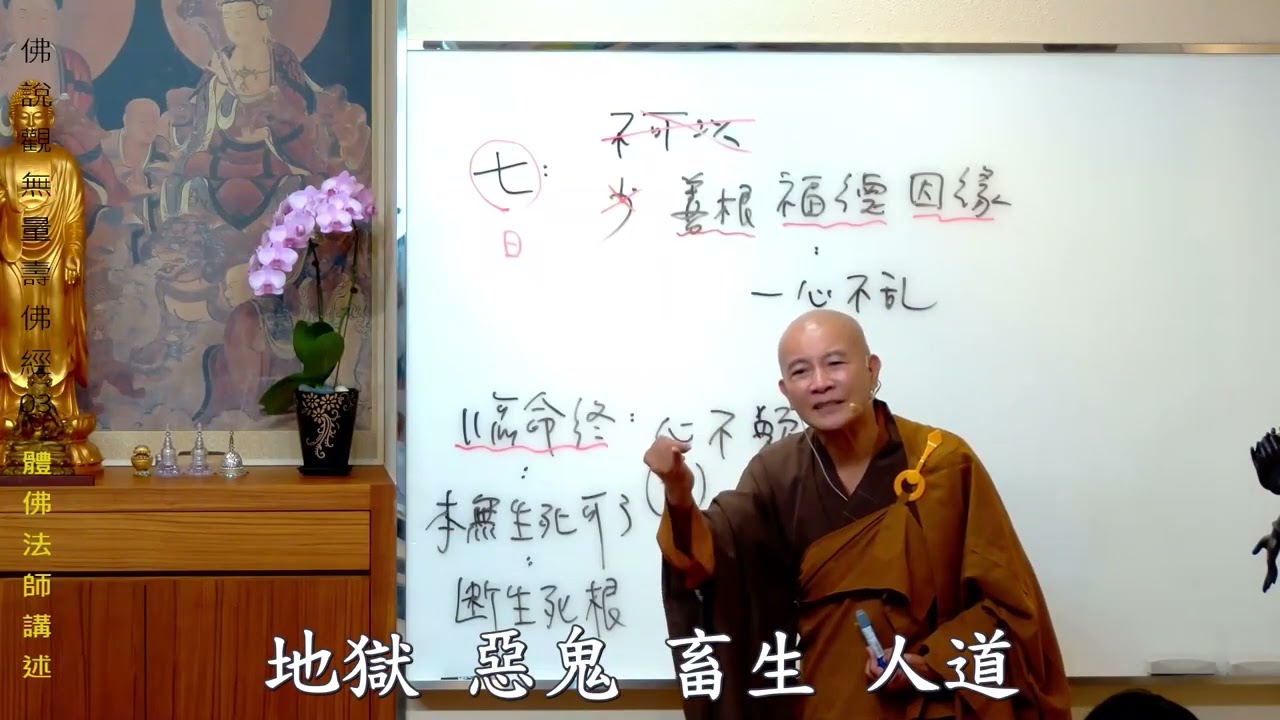 佛說觀無量壽佛經03
體佛法師講述
不可以
七：
日
少 善根 福德 因緣
：
一心不乱
臨命終：心不顛
：
本無生死可了
：
断生死根
地獄 惡鬼 畜生 人道